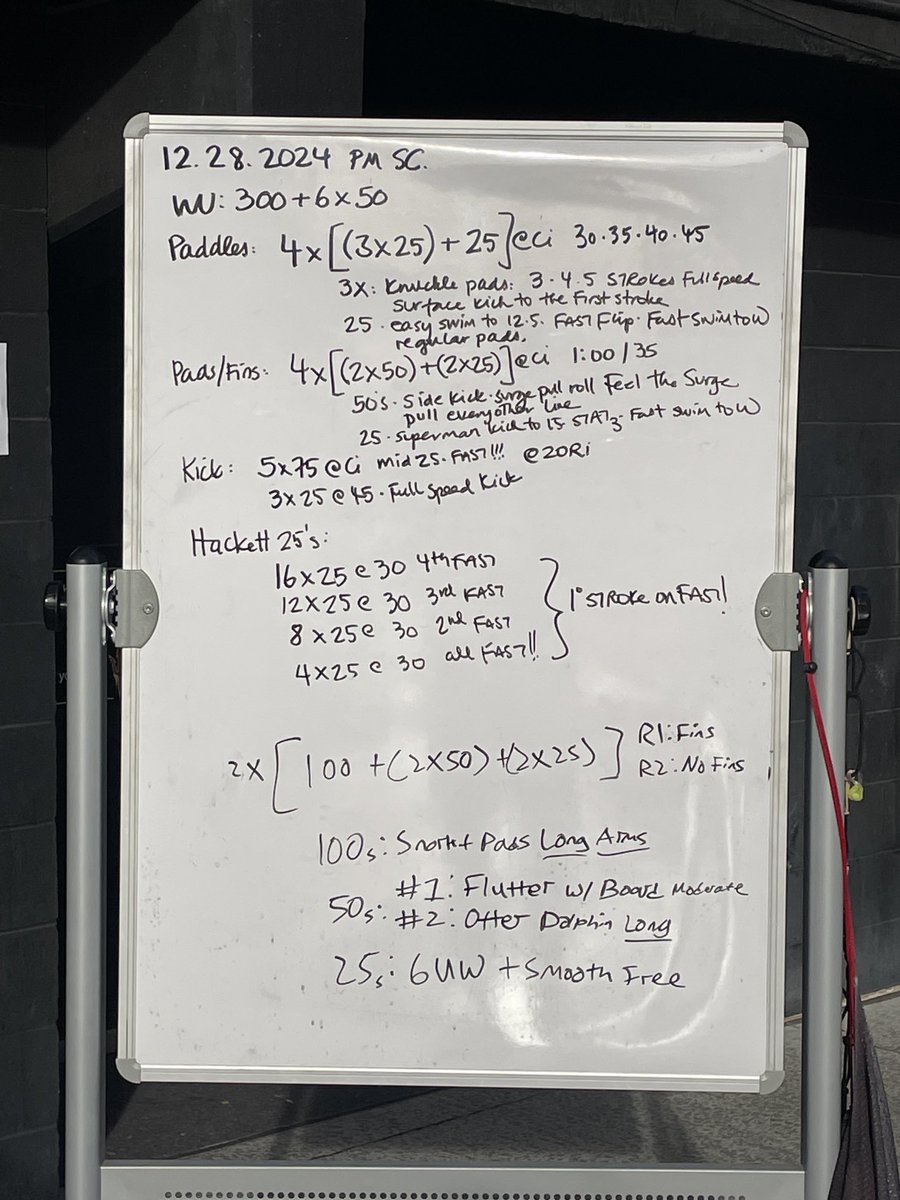 12.28.2024 PM SC.
WU: 300+6x50
Paddles: 4x[(3x25)+25]@ci 30.35.40.45
3x: Knuckle pads: 3.4.5 STROKES Full speed
surface kick to the First stroke
25. easy swim to 12.5. FAST Flip. Fast swim to W
regular pads.
Pads/Fins: 4x[(2x50)+(2x25)]@ci 1:00/35
50's. Side Kick. surge pull roll Feel the Surge
pull every other line
25. superman kick to 15 Fast swim to W
Kick: 5x75@ci mid 25. FAST!!! @20Ri
3x25@45. Full speed Kick
Hackett 25's:
16x25@30 4th FAST
12x25@30 3rd FAST
8x25@30 2nd FAST
4x25@30 all FAST!!
1° STROKE on FAST!
2x[100+(2x50)+(2x25)] R1: Fins
R2: No Fins
100s: Snorkel Pads Long Arms
50s: #1: Flutter w/ Board Moderate
#2: Otter Dolphin Long
25s: 6UW + Smooth Free